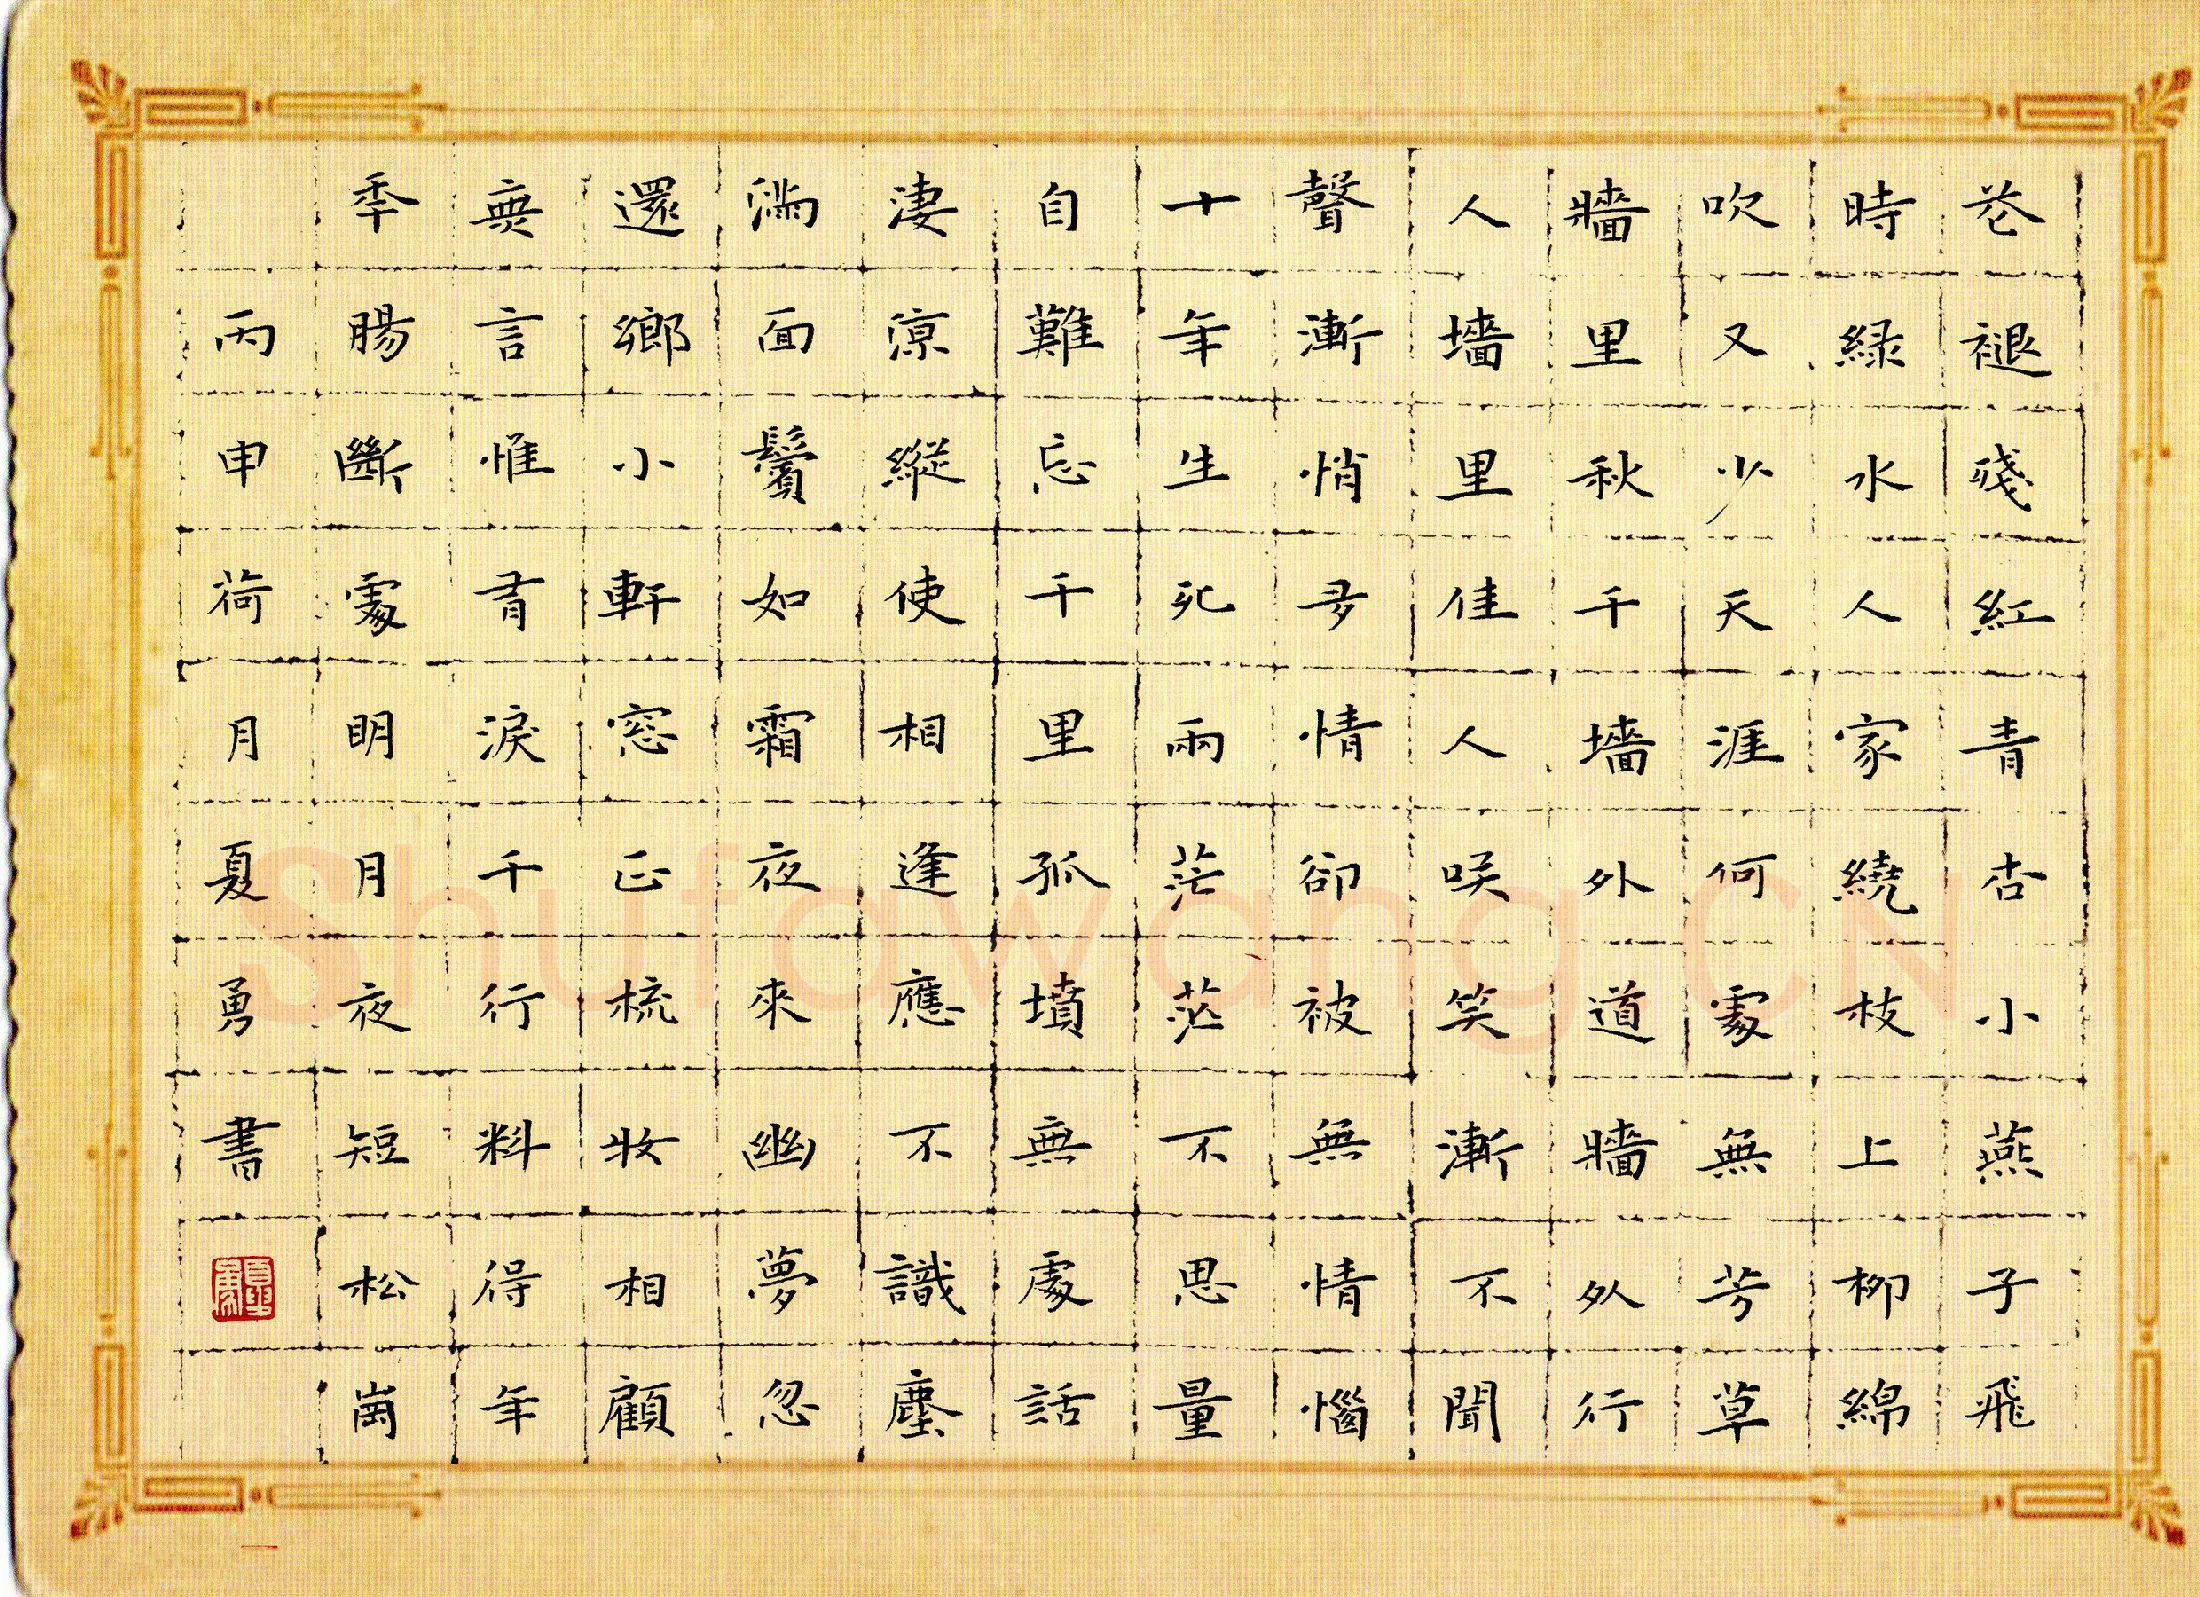 花褪殘紅青杏小燕子飛
時緑水人家繞枝上柳綿
吹又少天涯何處無芳草
牆里秋千墻外道牆外行
人墻里佳人咲笑漸不聞
聲漸悄多情卻被無情惱
十年生死兩茫茫不思量
自難忘千里孤墳無處話
淒涼縱使相逢應不識塵
滿面鬢如霜夜來幽夢忽
還鄉小軒窓正梳妝相顧
無言惟有淚千行料得年
年腸斷處明月夜短松崗
丙申荷月夏勇書
Shufawang.CN